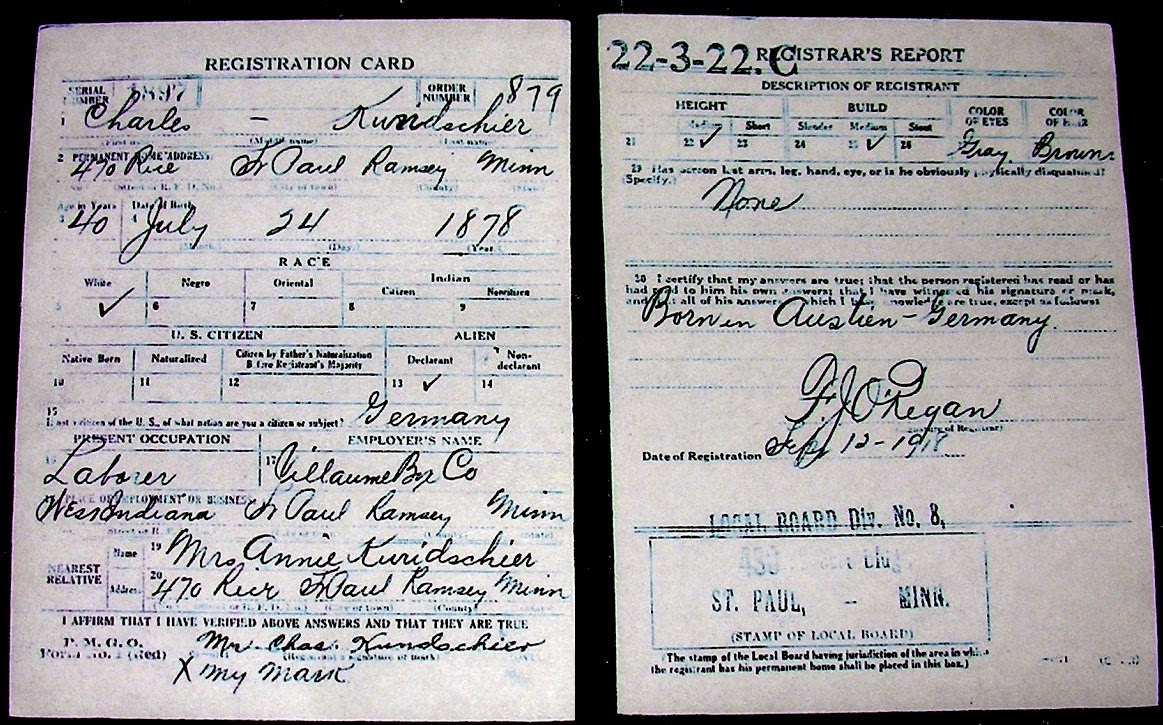 REGISTRATION CARD
SERIAL NUMBER ORDER NUMBER 879
1 Charles - Kundschier
(Middle name)
2 PERMANENT HOME ADDRESS:
470 Rice St Paul Ramsey Minn
(City or town) (County) (State)
Age in Years Date of Birth
3 40 4 July 24 1878
(Month) (Day) (Year)
RACE
White Negro Oriental Indian
Citizen Noncitizen
5 ✓ 6 7 8 9
U. S. CITIZEN ALIEN
Native Born Naturalized Citizen by Father's Naturalization Before Registrant's Majority Declarant Non-declarant
10 11 12 13 ✓ 14
15 If not a citizen of the U. S., of what nation are you a citizen or subject? Germany
PRESENT OCCUPATION EMPLOYER'S NAME
16 Laborer 17 Villaume Box Co
18 PLACE OF EMPLOYMENT OR BUSINESS
West Indiana St Paul Ramsey Minn
NEAREST RELATIVE
Name 19 Mrs Annie Kundschier
Address 20 470 Rice St Paul Ramsey Minn
I AFFIRM THAT I HAVE VERIFIED ABOVE ANSWERS AND THAT THEY ARE TRUE
P. M. G. O.
Form No. 1 (Red) Mr Chas Kundschier
(Registrant's signature or mark)
X my mark
22-3-22. C REGISTRAR'S REPORT
DESCRIPTION OF REGISTRANT
HEIGHT BUILD COLOR OF EYES COLOR OF HAIR
Medium Short Slender Medium Stout
21 22 ✓ 23 24 25 ✓ 26 Gray Brown
29 Has person lost arm, leg, hand, eye, or is he obviously physically disqualified?
(Specify.)
None
30 I certify that my answers are true; that the person registered has read or has
had read to him his own answers; that I have witnessed his signature or mark,
and that all of his answers of which I have knowledge are true, except as follows:
Born in Austien - Germany.
F. J. O'Regan
(Signature of Registrar)
Date of Registration Sep 12-1918
LOCAL BOARD DIV. NO. 8,
ST. PAUL, - MINN.
(STAMP OF LOCAL BOARD)
(The stamp of the Local Board having jurisdiction of the area in which
the registrant has his permanent home shall be placed in this box.)